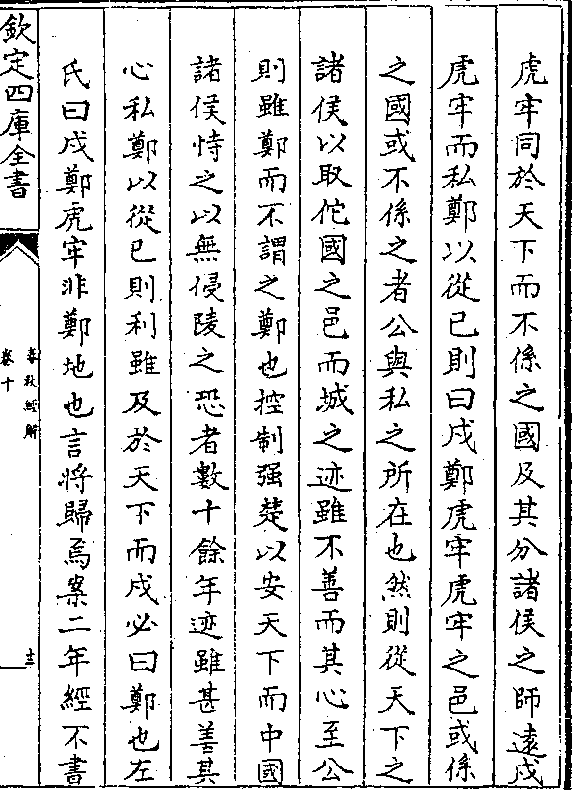 虎牢同於天下而不係之國及其分諸侯之師遠戍
虎牢而私鄭以從已則曰戍鄭虎牢虎牢之邑或係
之國或不係之者公與私之所在也然則從天下之
諸侯以取佗國之邑而城之迹雖不善而其心至公
則雖鄭而不謂之鄭也控制强楚以安天下而中國
諸侯恃之以無侵陵之恐者數十餘年迹雖甚善其
心私鄭以從已則利雖及於天下而戍必曰鄭也左
氏曰戍鄭虎牢非鄭地也言將歸焉案二年經不書
欽定四庫全書
春秋經解
卷十
十三